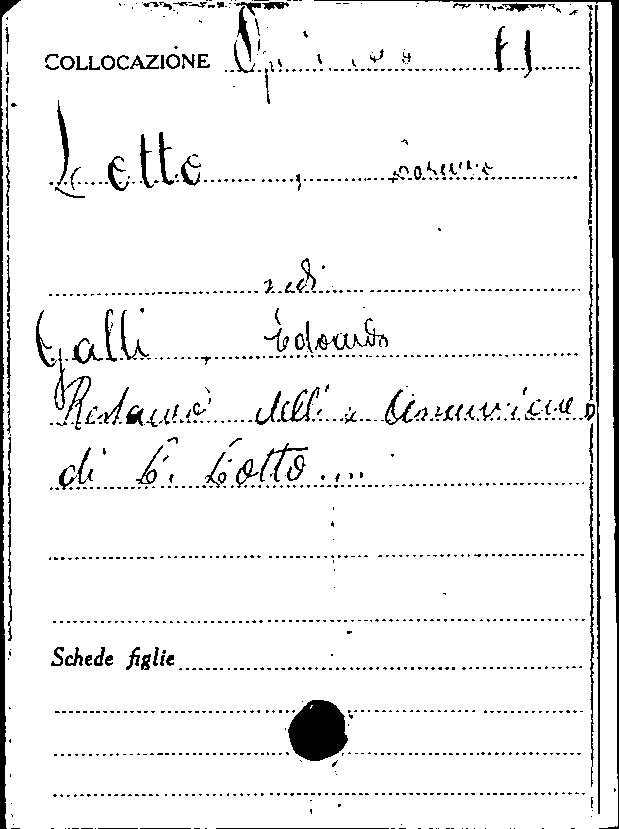 COLLOCAZIONE Opuscoo 11
Lotto, Lorenzo
vedi
Galli, Edoardo
Restauro dell'"Annunciazione"
di L. Lotto....
Schede figlie